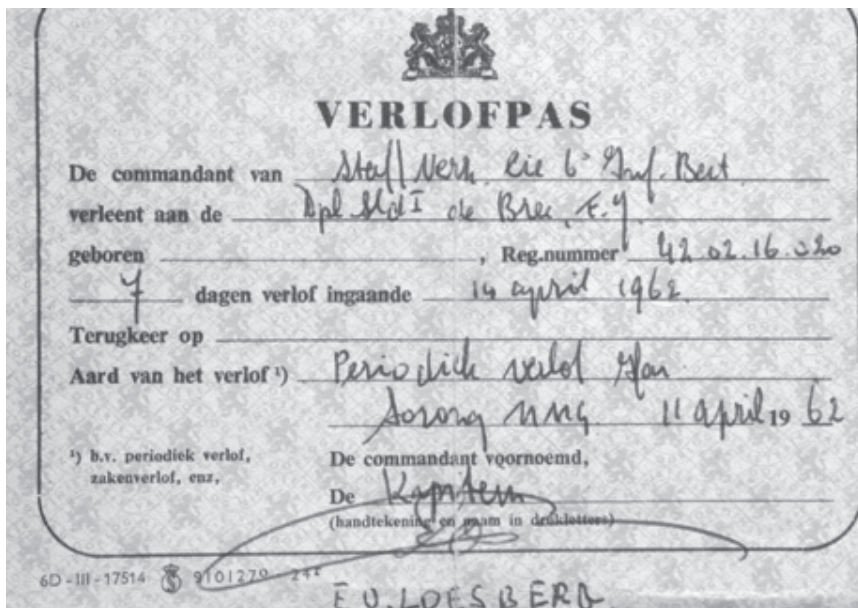 VERLOFPAS
De commandant van Staf/Verz. Cie 6e Inf. Bat
verleent aan de Dpl Sld I de Bree, F.J.
geboren , Reg.nummer 42.02.16.020
7 dagen verlof ingaande 14 april 1962
Terugkeer op
Aard van het verlof ¹) Periodiek verlof
Sorong NNG 11 april 19 62
¹) b.v. periodiek verlof,
zakenverlof, enz,
De commandant voornoemd,
De Kapitein
(handtekening en naam in drukletters)
6D-III-17514 9101270 - 24*